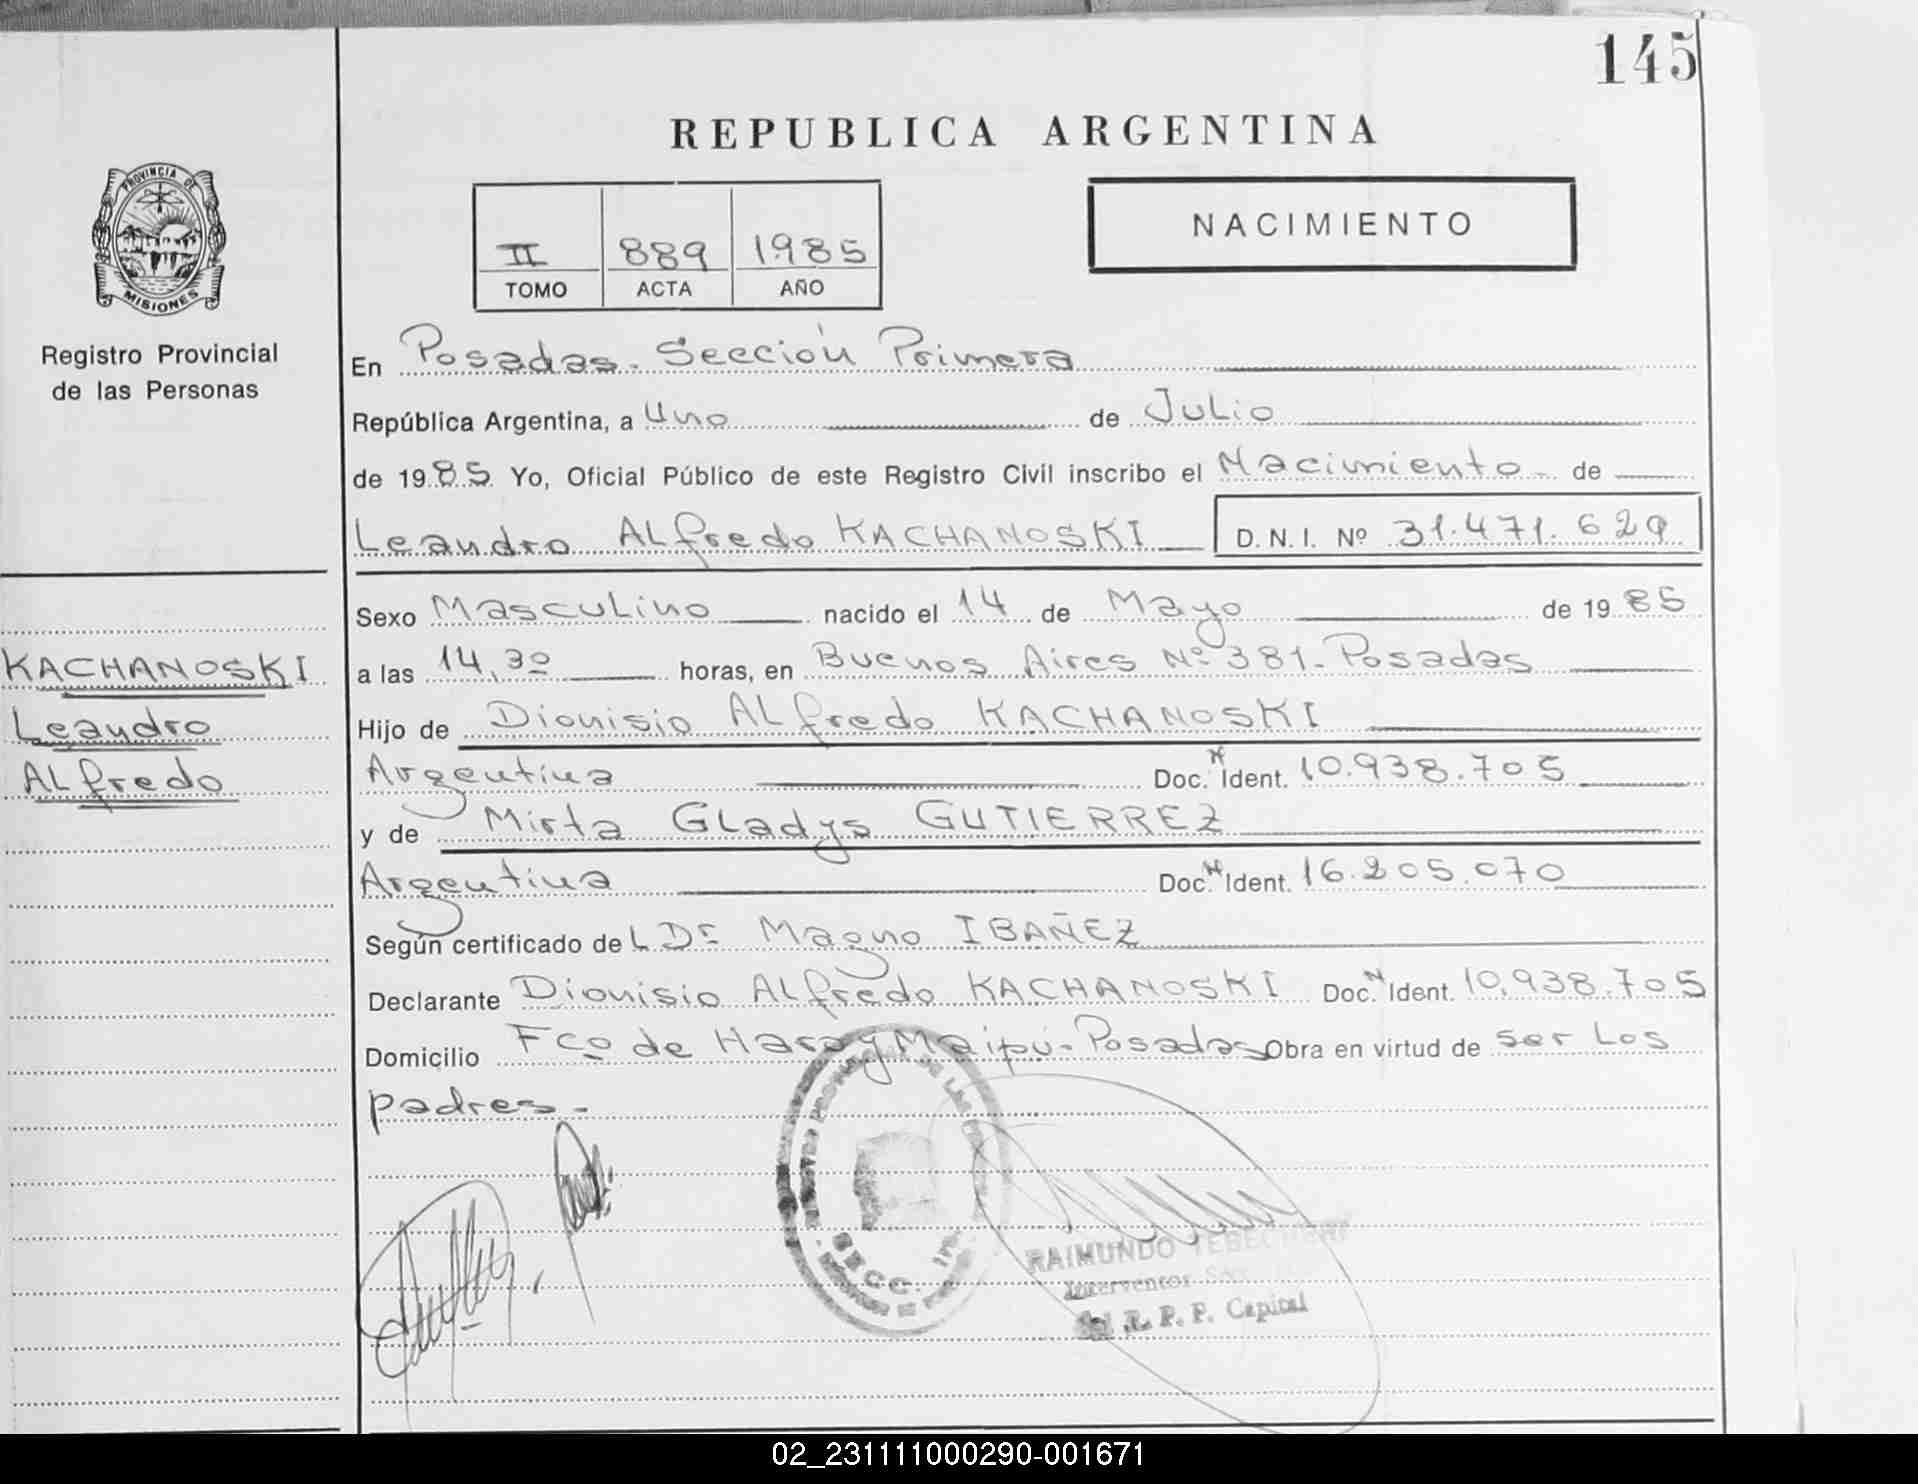 145
REPUBLICA ARGENTINA
PROVINCIA DE
MISIONES
Registro Provincial
de las Personas
II 889 1985
TOMO ACTA AÑO
NACIMIENTO
En Posadas. Sección Primera
República Argentina, a Uno de Julio
de 1985 Yo, Oficial Público de este Registro Civil inscribo el Nacimiento de
Leandro Alfredo KACHANOSKI D.N.I. Nº 31.471.629
Sexo Masculino nacido el 14 de Mayo de 1985
a las 14,30 horas, en Buenos Aires Nº 381-Posadas
Hijo de Dionisio Alfredo KACHANOSKI
Argentina Doc. N Ident. 10.938.705
y de Mirta Gladys GUTIERREZ
Argentina Doc. N Ident. 16.205.070
Según certificado del Dr Magno IBAÑEZ
Declarante Dionisio Alfredo KACHANOSKI Doc. N Ident. 10.938.705
Domicilio Fco de Haro y Maipú-Posadas Obra en virtud de ser los
padres.-
KACHANOSKI
Leandro
Alfredo
SECC. 1ra.
RAIMUNDO
Interventor
R. P. P. Capital
02_231111000290-001671